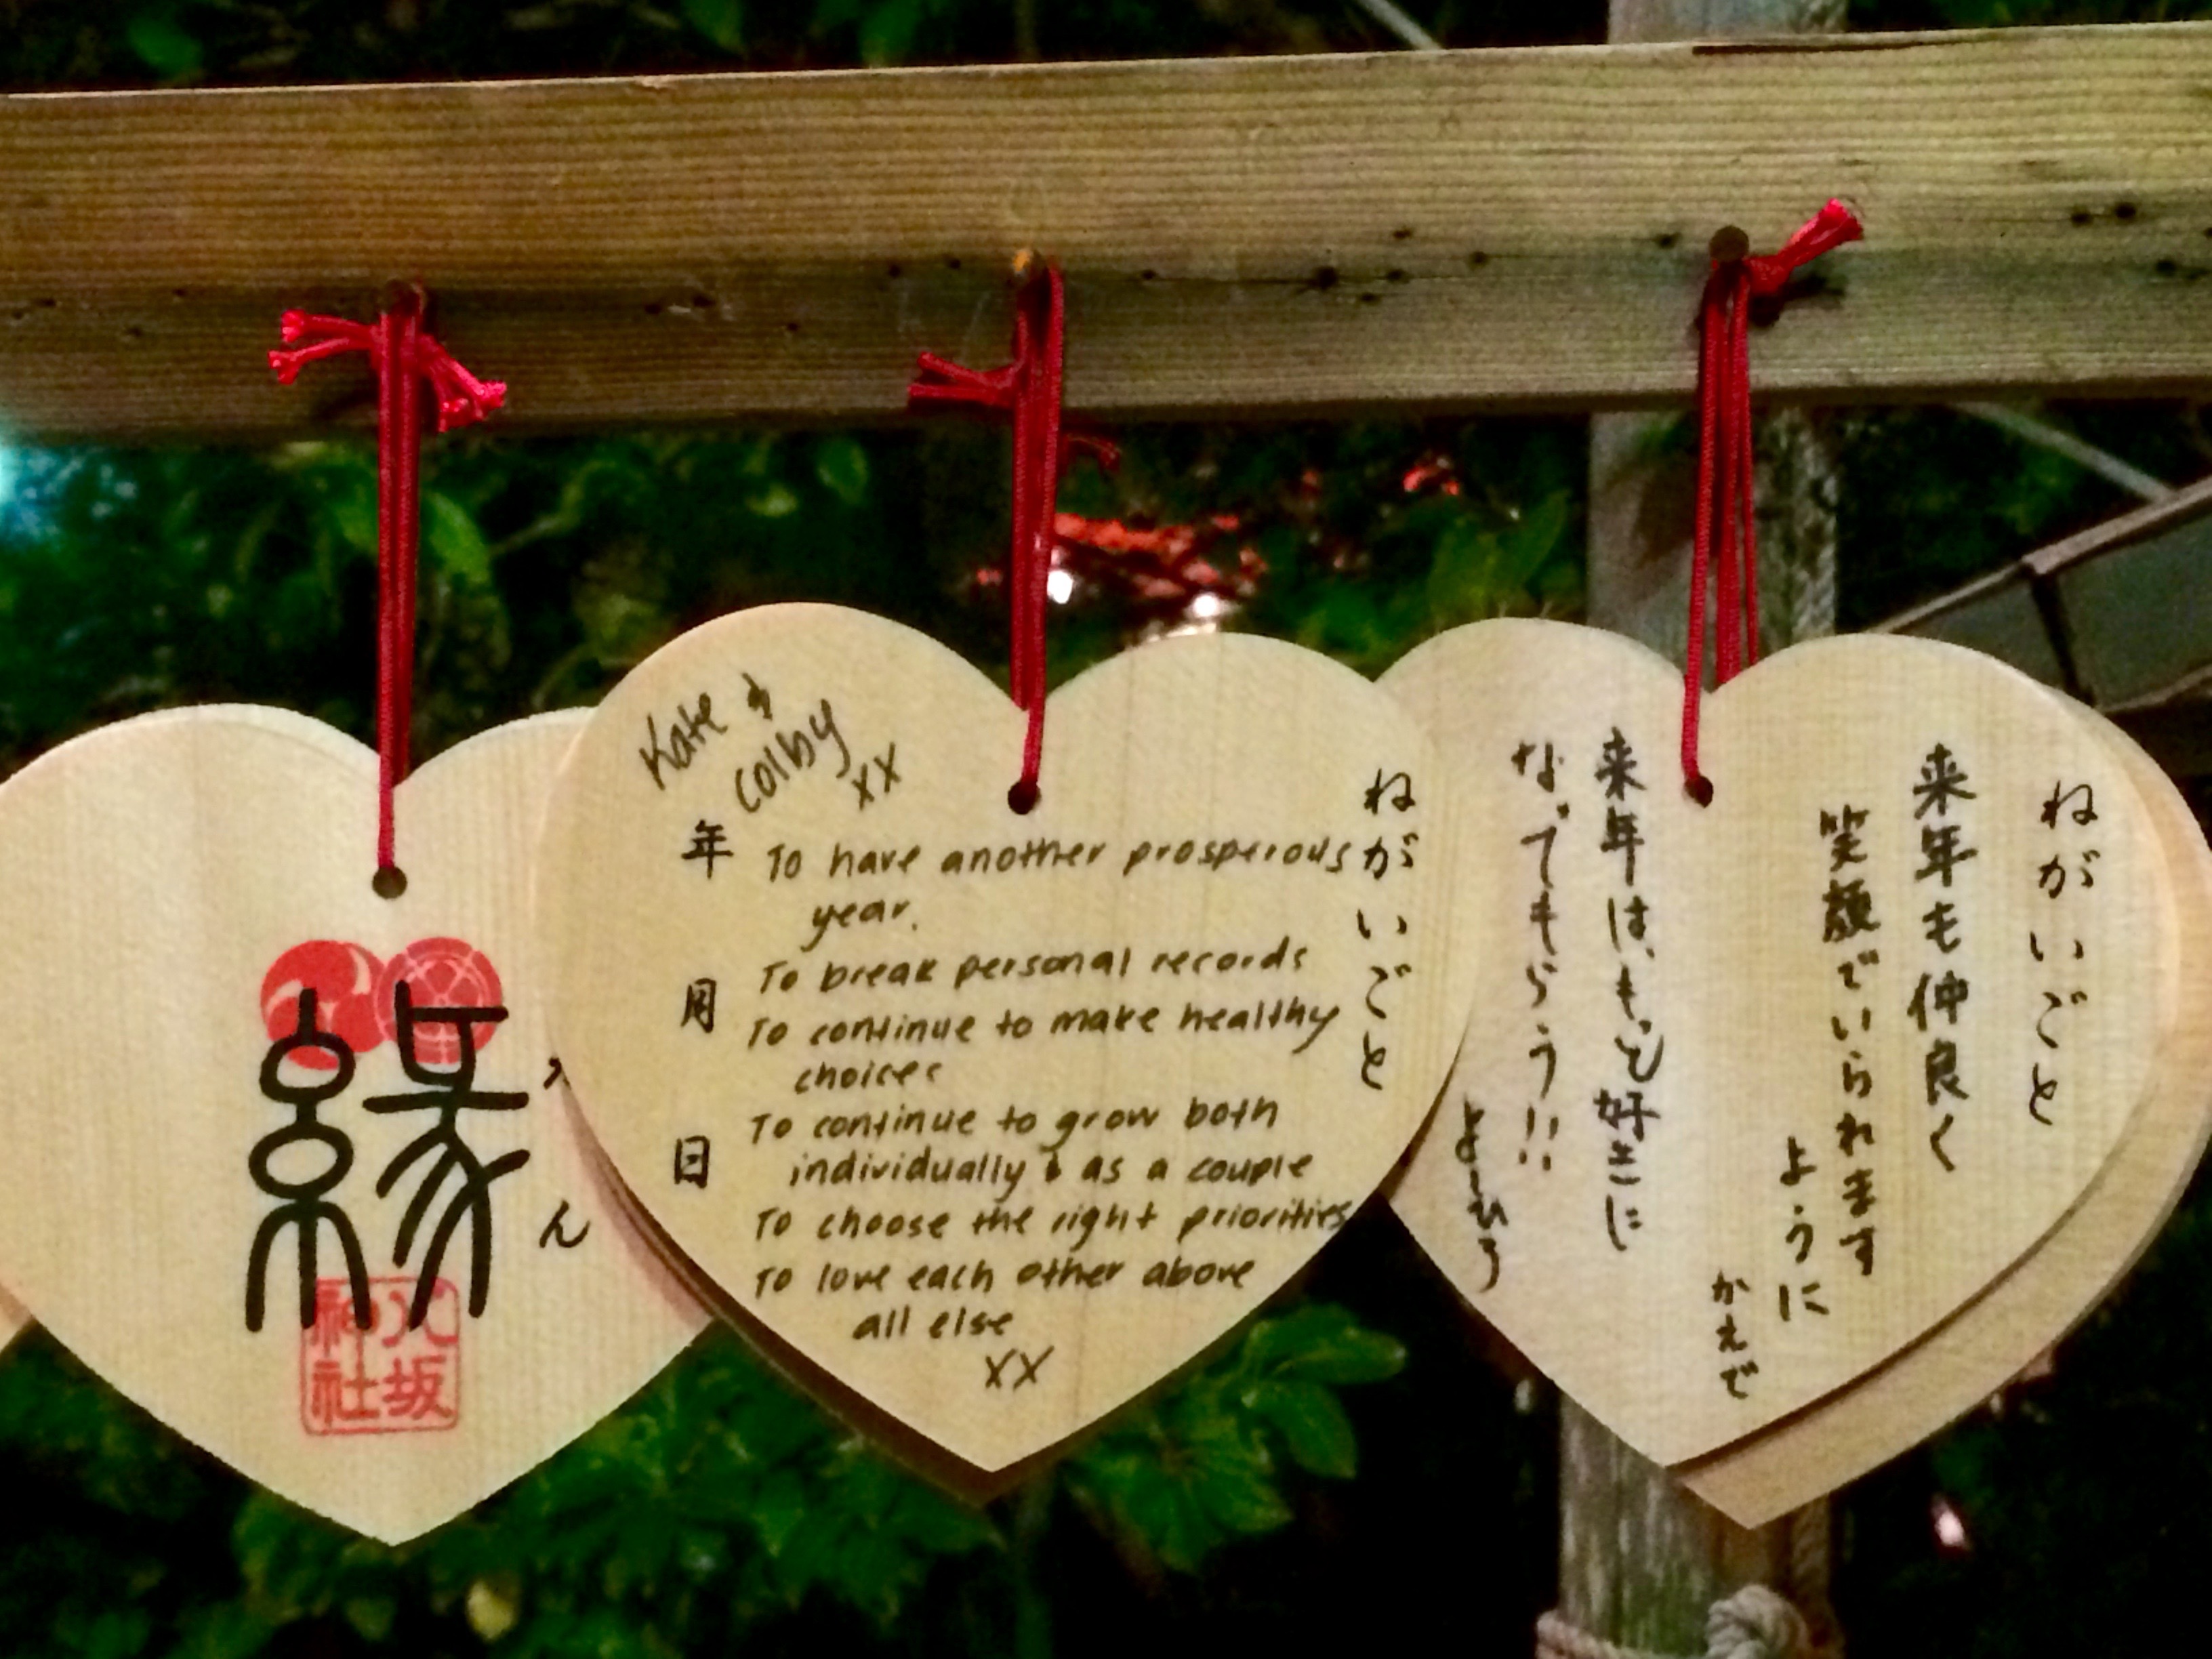 縁
ん
八坂
神社
Kate &
Colby
xx
ねがいごと
年
月
日
To have another prosperous
year.
To break personal records
To continue to make healthy
choices
To continue to grow both
individually & as a couple
To choose the right priorities
To love each other above
all else
xx
ねがいごと
来年も仲良く
笑顔でいられます
ように
かえで
来年は、もっと好きに
なってもらう!!